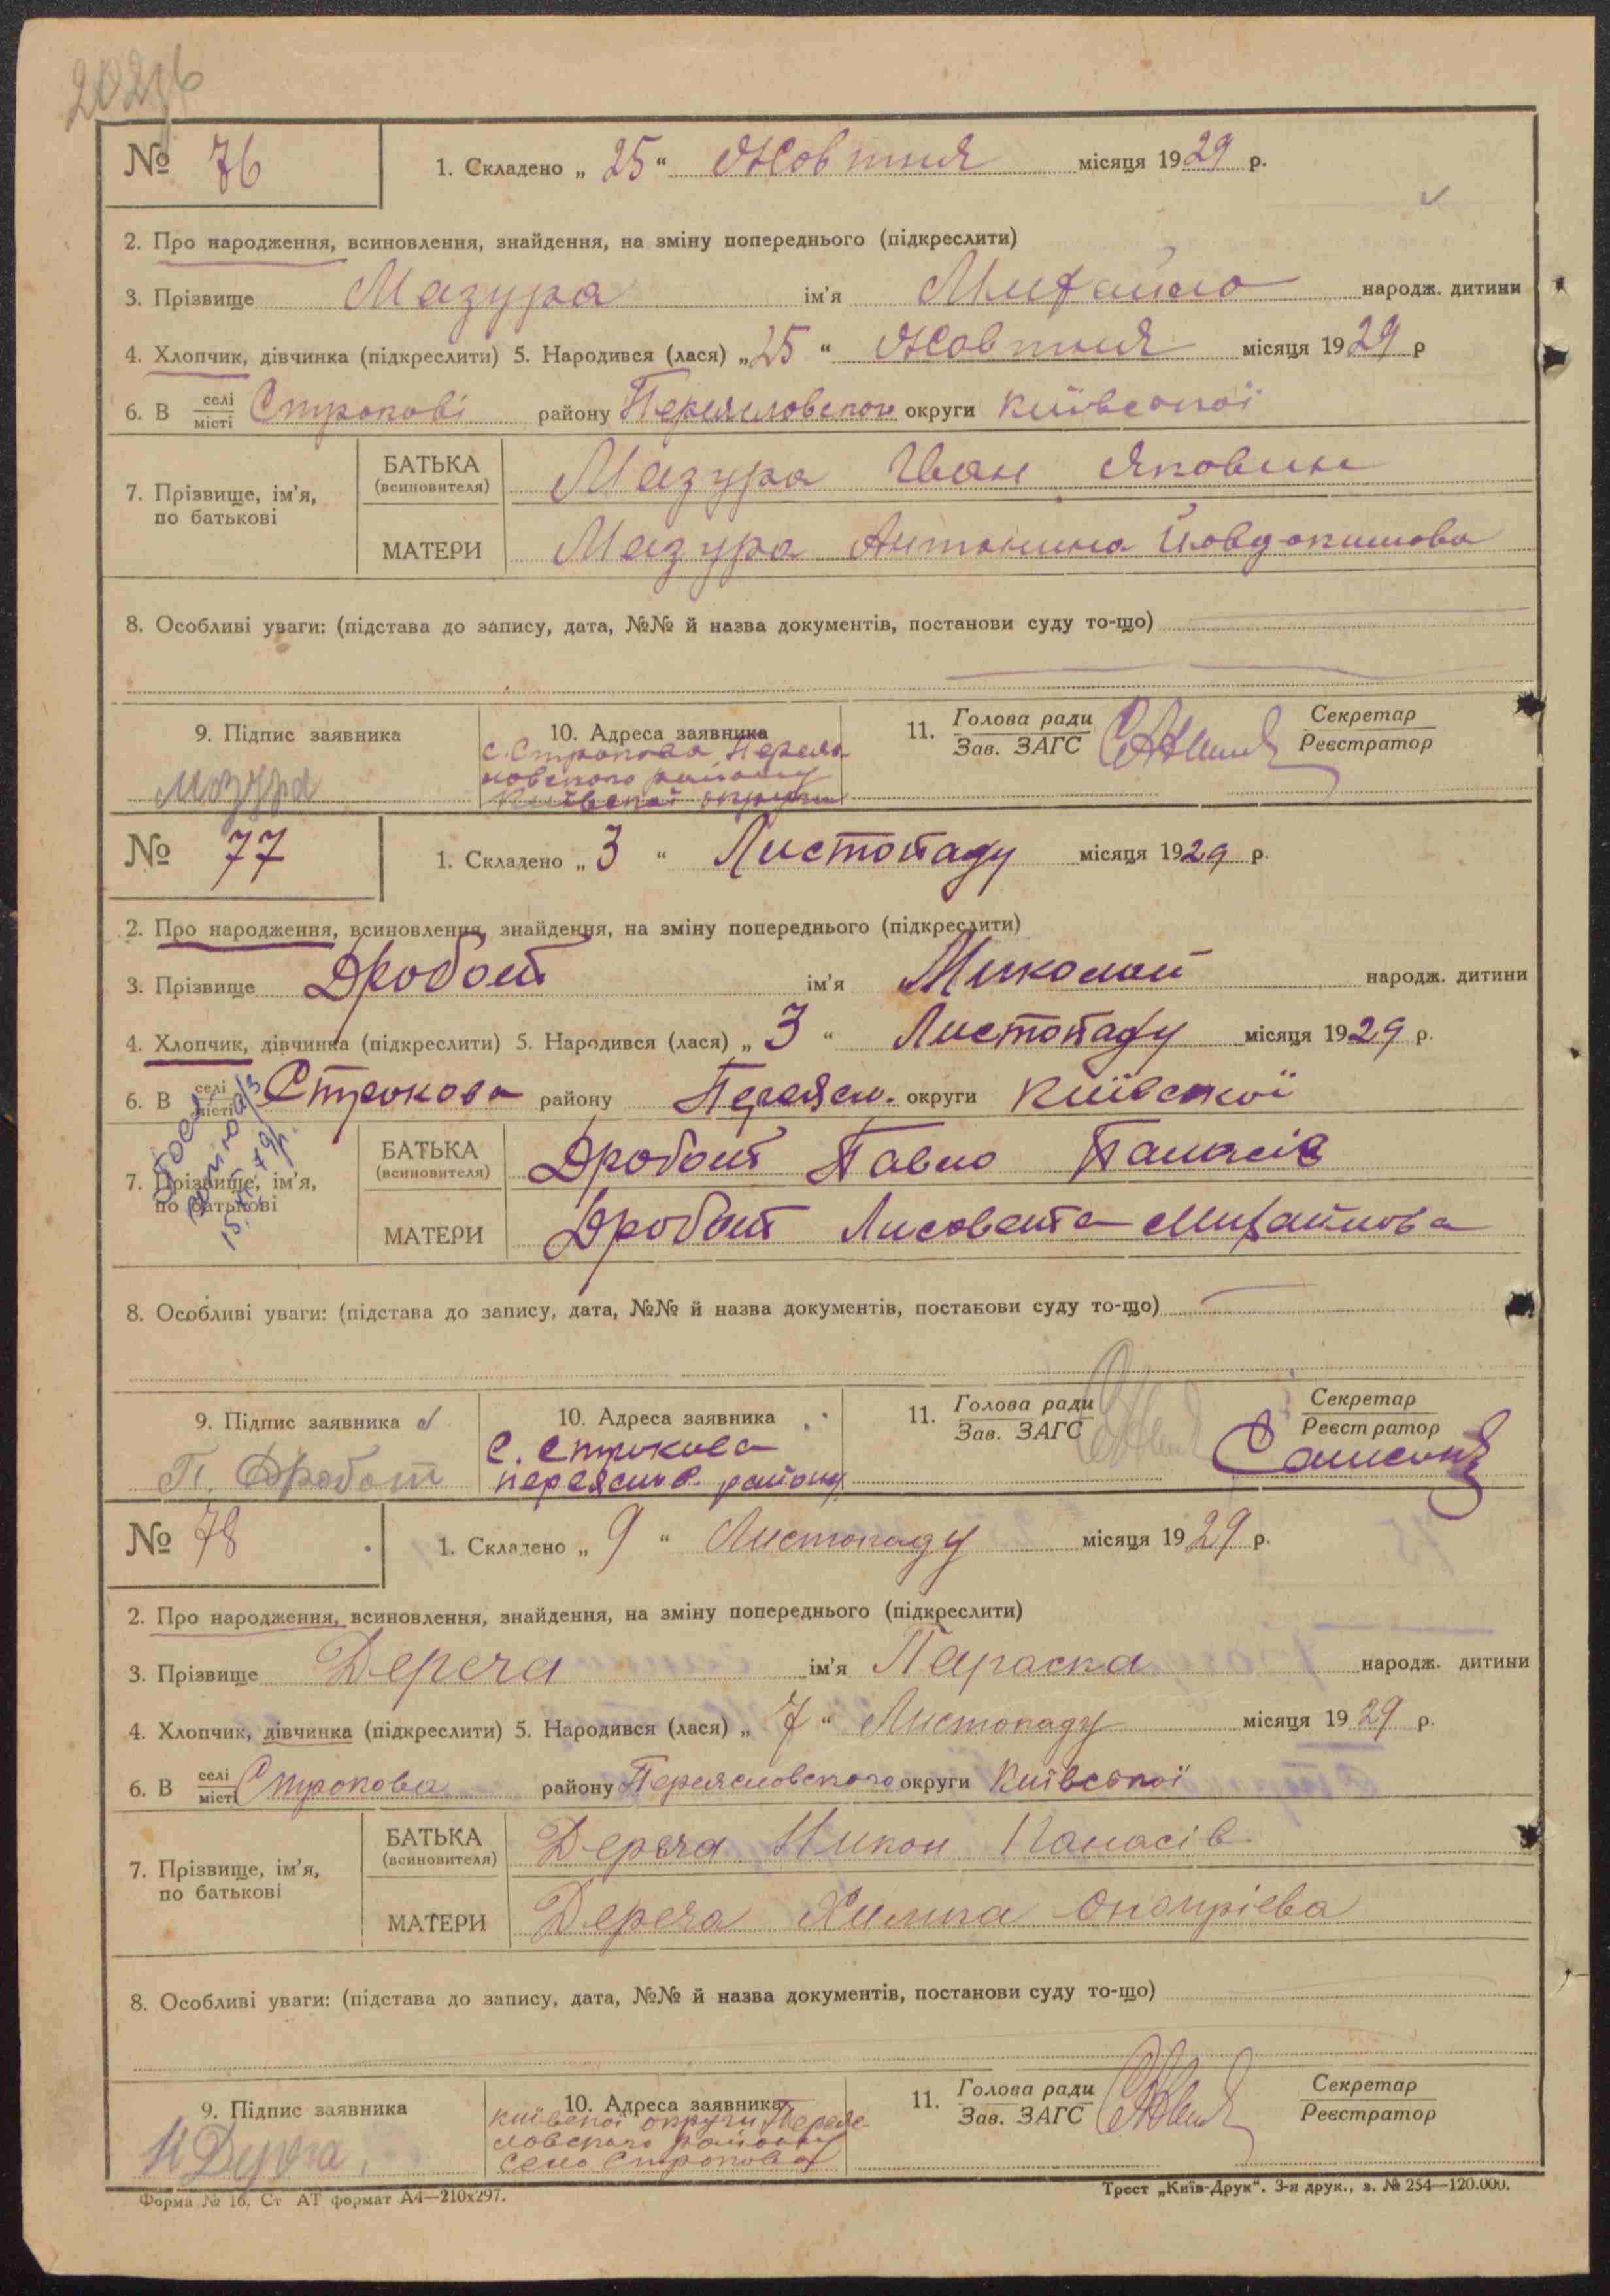 № 76
1. Складено „ 25 “ Жовтня місяця 1929 р.
2. Про народження, всиновлення, знайдення, на зміну попереднього (підкреслити)
3. Прізвище Мазура ім'я Михайло народж. дитини
4. Хлопчик, дівчинка (підкреслити) 5. Народився (лася) „ 25 “ Жовтня місяця 1929 р
6. В селі місті Строкові району Переясловского округи Київської
7. Прізвище, ім'я, по батькові
БАТЬКА (всиновителя) Мазура Иван Яковин
МАТЕРИ Мазура Антонина Йовдокимова
8. Особливі уваги: (підстава до запису, дата, №№ й назва документів, постанови суду то-що)
9. Підпис заявника
Мазура
10. Адреса заявника
с. Строкова Переяс
ловского району
Київської округи
11. Голова ради
Зав. ЗАГС
Секретар
Реєстратор
№ 77
1. Складено „ 3 “ Листопаду місяця 1929 р.
2. Про народження, всиновлення, знайдення, на зміну попереднього (підкреслити)
3. Прізвище Дробот ім'я Миколай народж. дитини
4. Хлопчик, дівчинка (підкреслити) 5. Народився (лася) „ 3 “ Листопаду місяця 1929 р.
6. В селі місті Строкова району Переясл. округи Київської
7. Прізвище, ім'я, по батькові
БАТЬКА (всиновителя) Дробот Павло Панасів
МАТЕРИ Дробот Лисовета Михайлова
8. Особливі уваги: (підстава до запису, дата, №№ й назва документів, постанови суду то-що)
9. Підпис заявника
П. Дробот
10. Адреса заявника
С. Строкова
переяслів. району
11. Голова ради
Зав. ЗАГС
Секретар
Реєстратор
№ 78
1. Складено „ 9 “ Листопаду місяця 1929 р.
2. Про народження, всиновлення, знайдення, на зміну попереднього (підкреслити)
3. Прізвище Дереча ім'я Параска народж. дитини
4. Хлопчик, дівчинка (підкреслити) 5. Народився (лася) „ 7 “ Листопаду місяця 1929 р.
6. В селі місті Строкова району Переясловского округи Київської
7. Прізвище, ім'я, по батькові
БАТЬКА (всиновителя) Дереча Никон Панасів
МАТЕРИ Дереча Химка Оноприєва
8. Особливі уваги: (підстава до запису, дата, №№ й назва документів, постанови суду то-що)
9. Підпис заявника
10. Адреса заявника
київської округи Перея-
словского району
село Строкова
11. Голова ради
Зав. ЗАГС
Секретар
Реєстратор
Форма № 16, Ст АТ формат А4—210х297.
Трест „Київ-Друк“. 3-я друк., з. № 254—120.000.